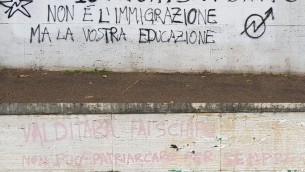 NON È L'IMMIGRAZIONE
MA LA VOSTRA EDUCAZIONE
VALDITARA FAI SCHIFO
NON PUOI PATRIARCARE PER SEMPRE